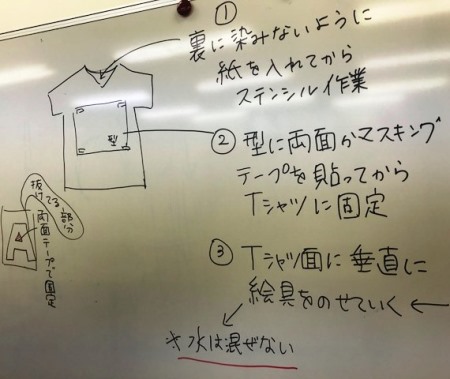 ①
裏に染みないように
紙を入れてから
ステンシル作業
②型に両面かマスキング
テープを貼ってから
Tシャツに固定
③Tシャツ面に垂直に
絵具をのせていく
※水は混ぜない
型
抜けてる部分
A
両面テープで固定